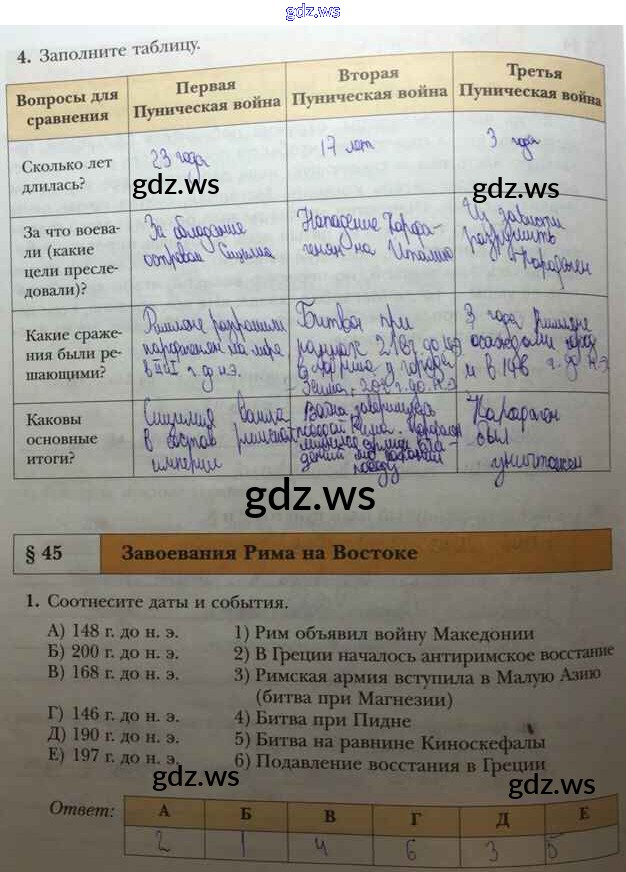 gdz.ws
4. Заполните таблицу.
Вопросы для сравнения
Первая Пуническая война
Вторая Пуническая война
Третья Пуническая война
Сколько лет длилась?
23 года
17 лет
3 года
gdz.ws
gdz.ws
За что воева-
ли (какие
цели пресле-
довали)?
За обладание
островом Сицилия
Нападение Карфа-
генян на Италию
Из зависти
разрушить
Карфаген
Какие сраже-
ния были ре-
шающими?
Римляне разгромили
карфагенян на море
в III г. до н.э.
Битва при
Каннах 216 г. до н.э.
у города
Зама, 202 г. до н.э.
3 года римляне
осаждали город
и в 146 г. до н.э.
Каковы
основные
итоги?
Сицилия вошла
в состав римской
империи
Война завершилась
победой Рима. Карфаген
Карфаген
был
уничтожен
gdz.ws
§ 45 Завоевания Рима на Востоке
1. Соотнесите даты и события.
А) 148 г. до н. э. 1) Рим объявил войну Македонии
Б) 200 г. до н. э. 2) В Греции началось антиримское восстание
В) 168 г. до н. э. 3) Римская армия вступила в Малую Азию
(битва при Магнезии)
Г) 146 г. до н. э. 4) Битва при Пидне
Д) 190 г. до н. э. 5) Битва на равнине Киноскефалы
Е) 197 г. до н. э. 6) Подавление восстания в Греции
gdz.ws
gdz.ws
Ответ: А Б В Г Д Е
2 1 4 6 3 5